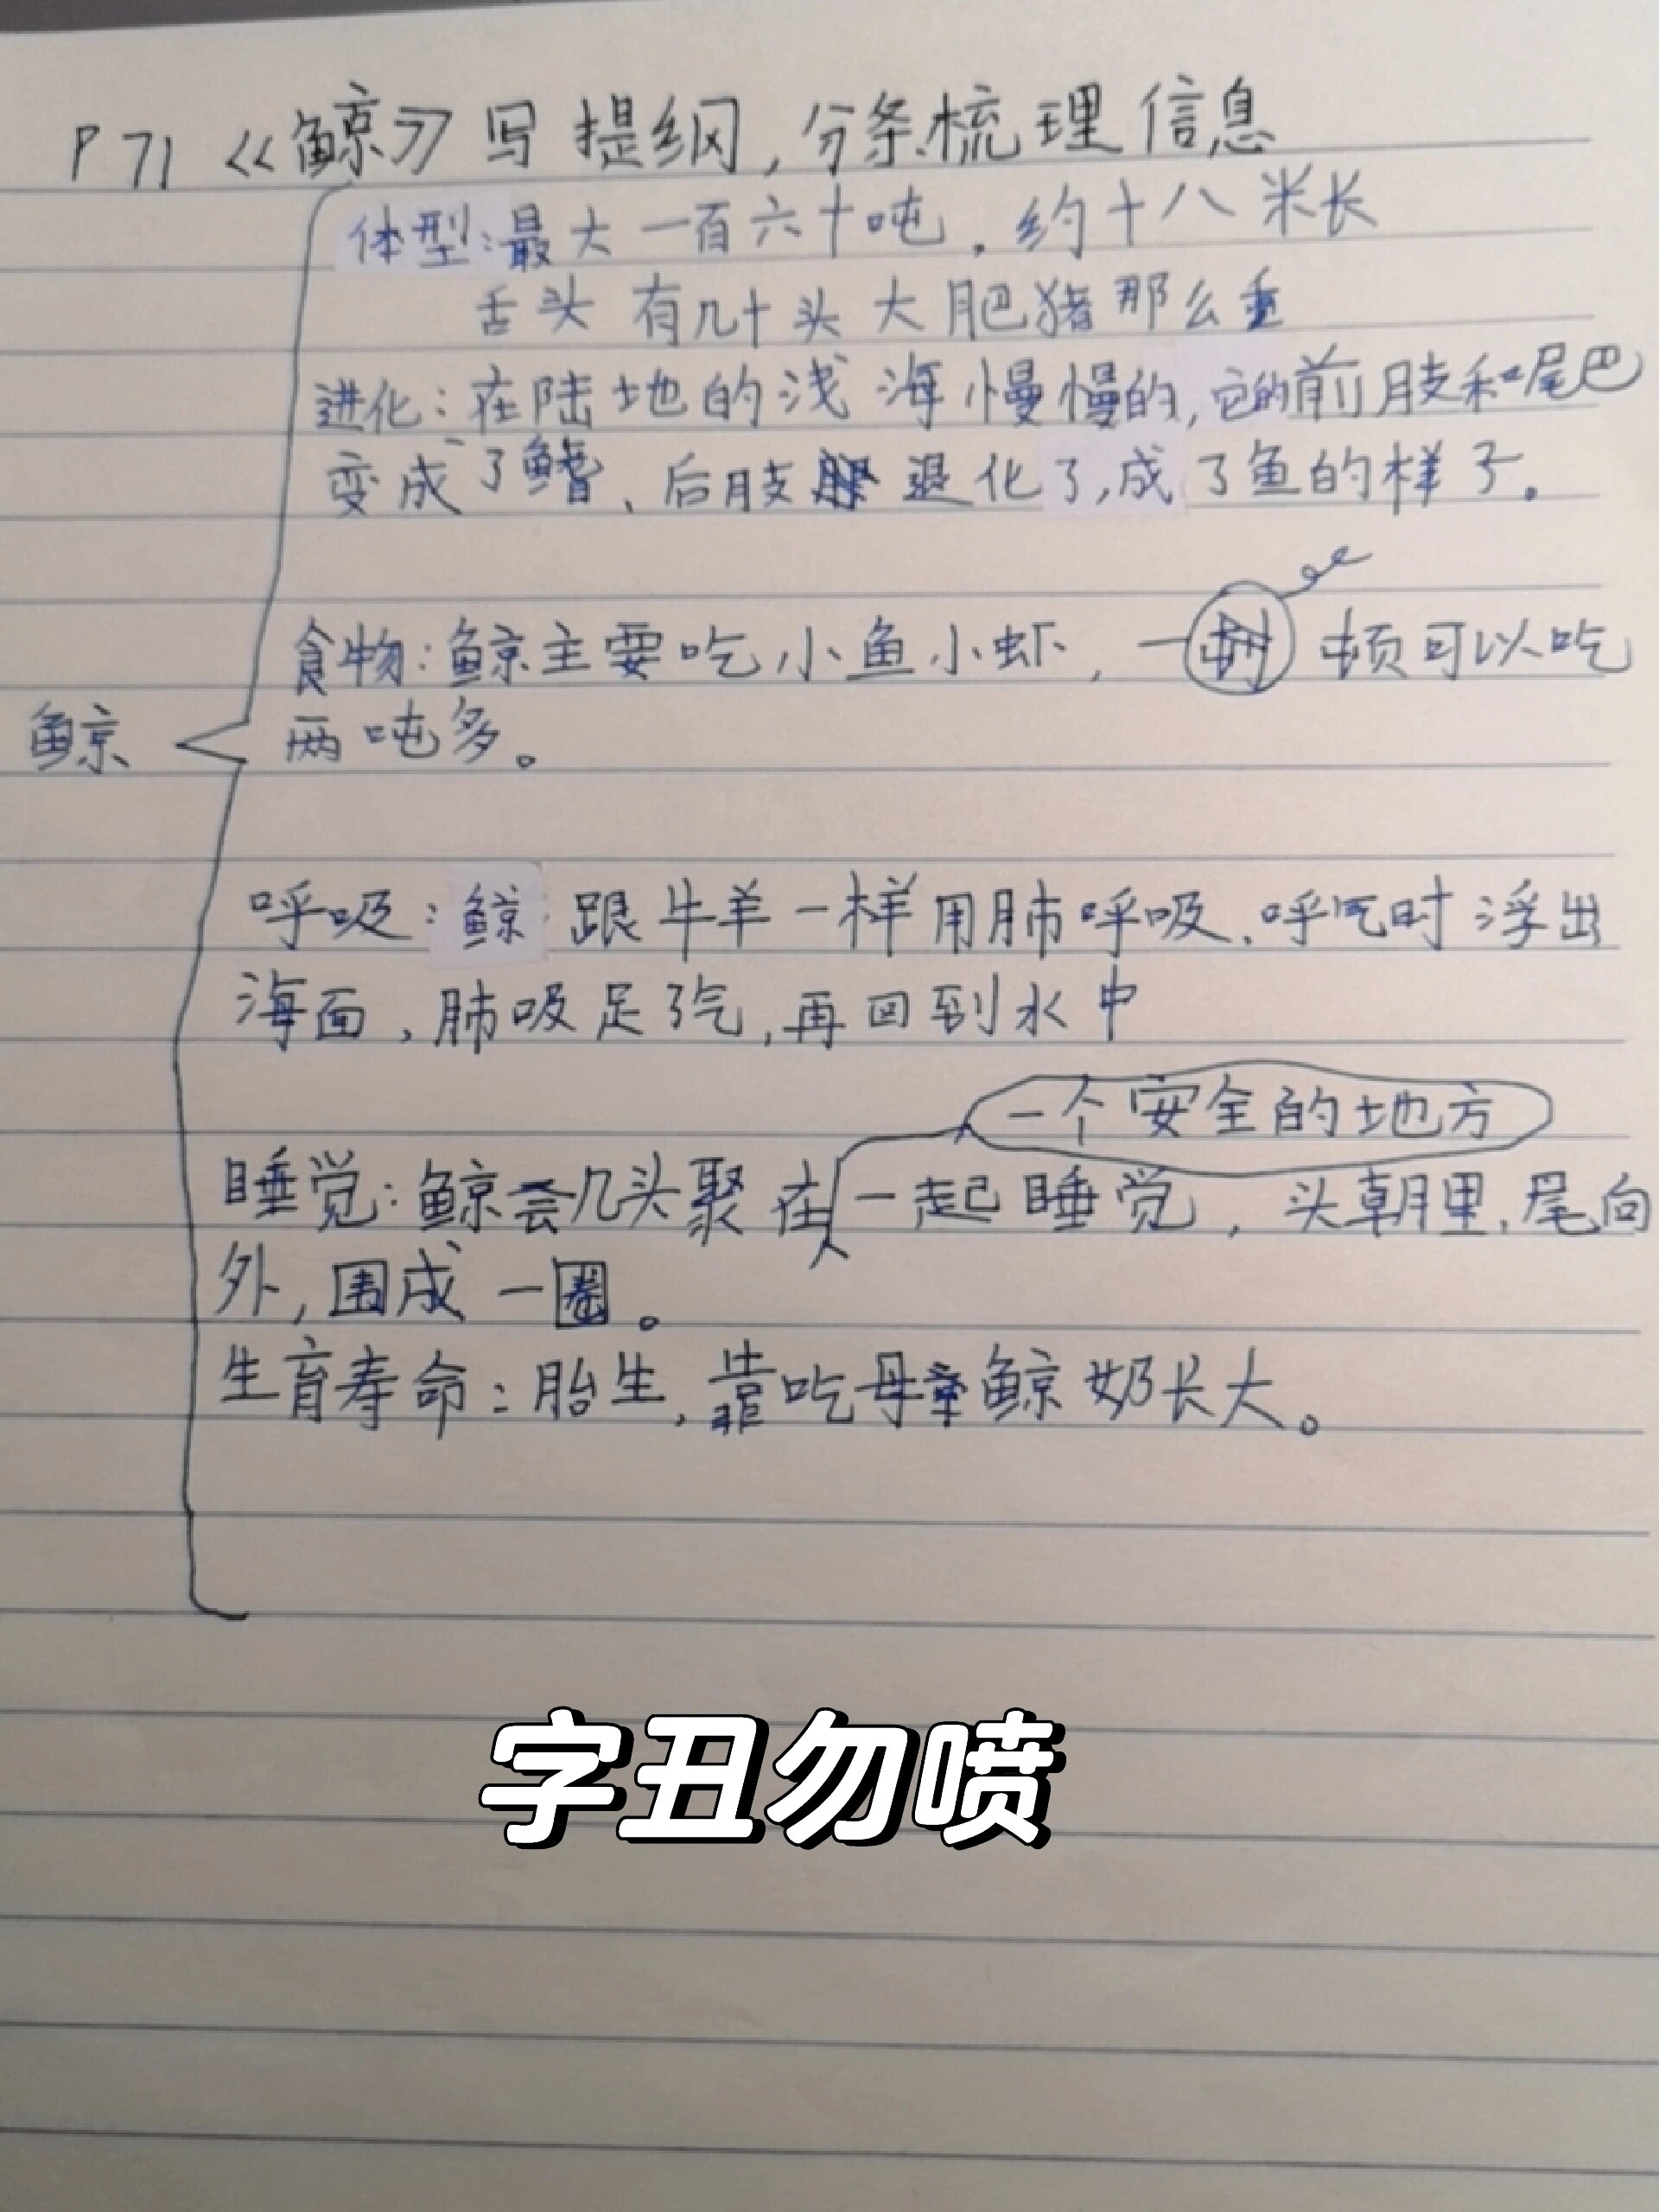 P71《鲸》写提纲,分条梳理信息
体型:最大一百六十吨.约十八米长
舌头有几十头大肥猪那么重
进化:在陆地的浅海慢慢的,它的前肢和尾巴
变成了鳍、后肢退化了,成了鱼的样子.
食物:鲸主要吃小鱼小虾,一顿可以吃
鲸
两吨多。
呼吸:鲸跟牛羊一样用肺呼吸.呼气时浮出
海面,肺吸足了气,再回到水中
一个安全的地方
睡觉:鲸会几头聚在一起睡觉,头朝里.尾向
外,围成一圈。
生育寿命:胎生,靠吃母鲸奶长大。
字丑勿喷